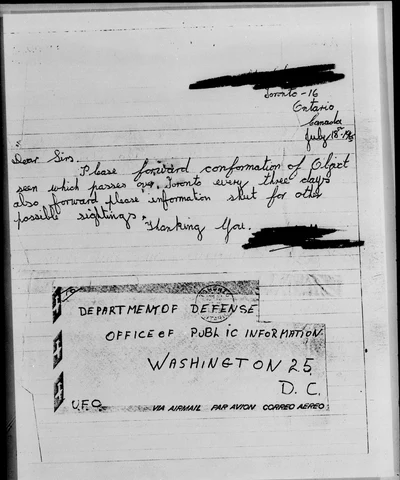 Toronto - 16
Ontario
Canada
July 18th
Dear Sirs.
Please forward conformation of Object
seen which passes over Toronto every three days
also forward please information sheet for other
possible sightings.
Thanking You.
DEPARTMENT OF DEFENSE
OFFICE OF PUBLIC INFORMATION
WASHINGTON 25
D. C.
U.F.O.
VIA AIRMAIL PAR AVION CORREO AEREO